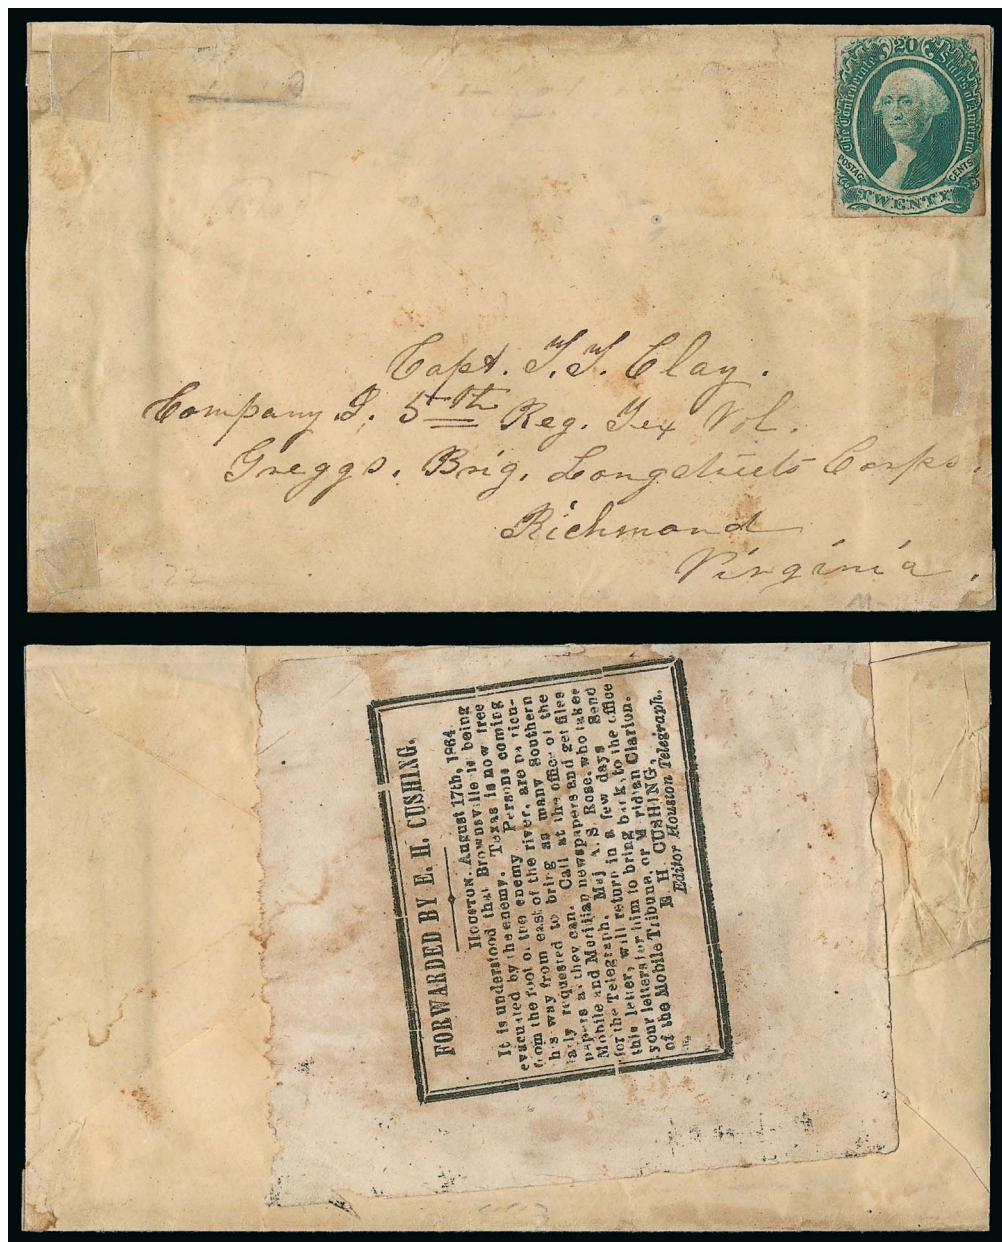 The Confederate States of America
20
POSTAGE CENTS
TWENTY
Capt. T. T. Clay.
Company I. 5th Reg. Tex Vol.
Greggs. Brig. Longstreets Corps.
Richmond
Virginia.
22
FORWARDED BY E. H. CUSHING.
HOUSTON, August 17th, 1864
It is understood that Brownsville is being
evacuated by the enemy. Texas is now free
from the foot of the enemy. Persons coming
his way from east of the river, are paricu-
larly requested to bring as many Southern
papers as they can. Call at the office of the
Mobile and Meridian newspapers and get files
for the Telegraph. Maj A. S. Rose, who takes
this letter, will return in a few days Send
your letters for him to bring back, to the office
of the Mobile Tribune, or M ridian Clarion.
E H. CUSHING,
Editor Houston Telegraph.